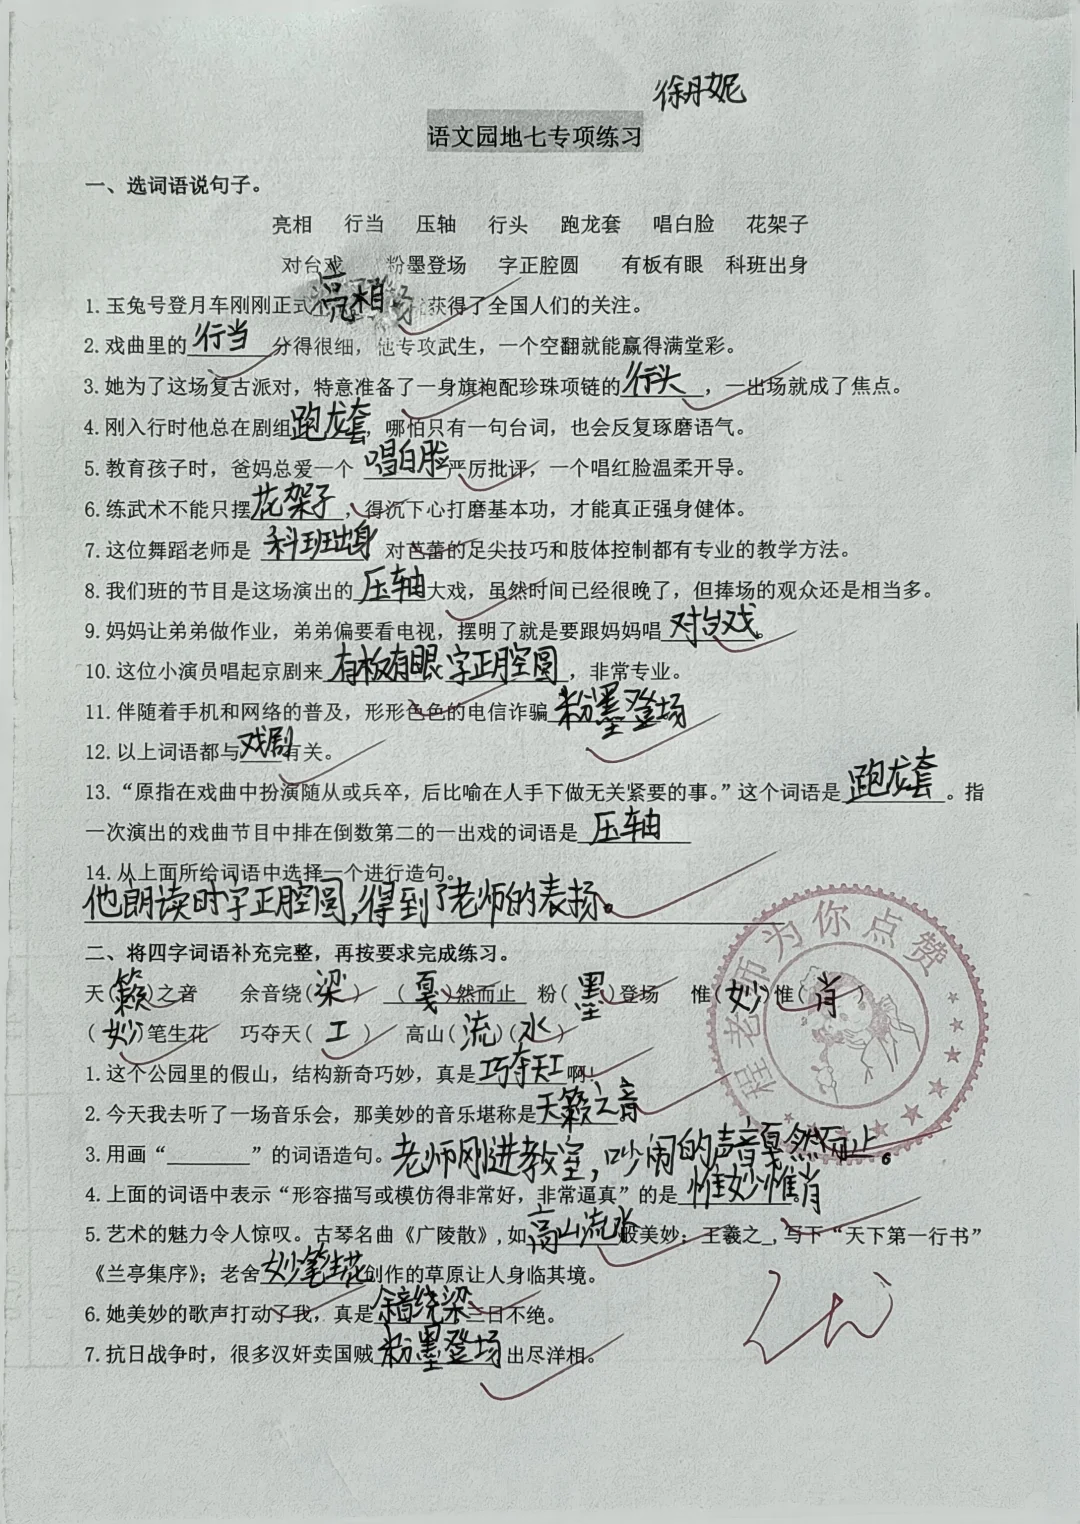 徐丹妮
语文园地七专项练习
一、选词语说句子。
亮相 行当 压轴 行头 跑龙套 唱白脸 花架子
对台戏 粉墨登场 字正腔圆 有板有眼 科班出身
1.玉兔号登月车刚刚正式亮相 获得了全国人们的关注。
2.戏曲里的行当分得很细，他专攻武生，一个空翻就能赢得满堂彩。
3.她为了这场复古派对，特意准备了一身旗袍配珍珠项链的行头，一出场就成了焦点。
4.刚入行时他总在剧组跑龙套，哪怕只有一句台词，也会反复琢磨语气。
5.教育孩子时，爸妈总爱一个 唱白脸严厉批评，一个唱红脸温柔开导。
6.练武术不能只摆花架子，得沉下心打磨基本功，才能真正强身健体。
7.这位舞蹈老师是 科班出身 对芭蕾的足尖技巧和肢体控制都有专业的教学方法。
8.我们班的节目是这场演出的压轴大戏，虽然时间已经很晚了，但捧场的观众还是相当多。
9.妈妈让弟弟做作业，弟弟偏要看电视，摆明了就是要跟妈妈唱对台戏。
10.这位小演员唱起京剧来有板有眼字正腔圆，非常专业。
11.伴随着手机和网络的普及，形形色色的电信诈骗粉墨登场
12.以上词语都与戏剧有关。
13.“原指在戏曲中扮演随从或兵卒，后比喻在人手下做无关紧要的事。”这个词语是跑龙套。指
一次演出的戏曲节目中排在倒数第二的一出戏的词语是压轴
14.从上面所给词语中选择一个进行造句。
他朗读时字正腔圆，得到了老师的表扬。
二、将四字词语补充完整，再按要求完成练习。
天(籁)之音 余音绕(梁) (戛)然而止 粉(墨)登场 惟(妙)惟(肖)
(妙)笔生花 巧夺天(工) 高山(流)(水)
1.这个公园里的假山，结构新奇巧妙，真是巧夺天工啊!
2.今天我去听了一场音乐会，那美妙的音乐堪称是天籁之音。
3.用画“________”的词语造句。老师刚进教室，吵闹的声音戛然而止。
4.上面的词语中表示“形容描写或模仿得非常好，非常逼真”的是惟妙惟肖。
5.艺术的魅力令人惊叹。古琴名曲《广陵散》,如高山流水般美妙；王羲之_,写下“天下第一行书”
《兰亭集序》；老舍妙笔生花创作的草原让人身临其境。
6.她美妙的歌声打动了我，真是余音绕梁，三日不绝。
7.抗日战争时，很多汉奸卖国贼粉墨登场出尽洋相。
程老师为你点赞